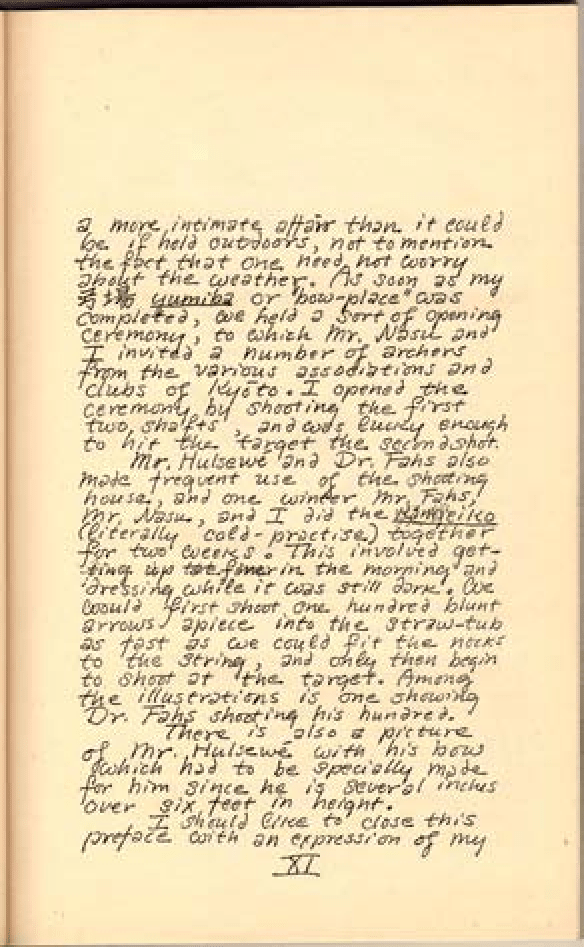 a more intimate affair than it could
be if held outdoors, not to mention
the fact that one need not worry
about the weather. As soon as my
yumiba or "bow-place" was
completed, we held a sort of opening
ceremony, to which Mr. Nasu and
I invited a number of archers
from the various associations and
clubs of Kyōto. I opened the
ceremony by shooting the first
two shafts, and was lucky enough
to hit the target the second shot.
Mr. Hulsewé and Dr. Fahs also
made frequent use of the shooting
house, and one winter Mr. Fahs,
Mr. Nasu, and I did the
(literally cold-practise) together
for two weeks. This involved get-
ting up in the morning and
dressing while it was still dark. We
would first shoot one hundred blunt
arrows apiece into the straw-tub
as fast as we could fit the nocks
to the string, and only then begin
to shoot at the target. Among
the illustrations is one showing
Dr. Fahs shooting his hundred.
There is also a picture
of Mr. Hulsewé with his bow
(which had to be specially made
for him since he is several inches
over six feet in height.
I should like to close this
preface with an expression of my
XI